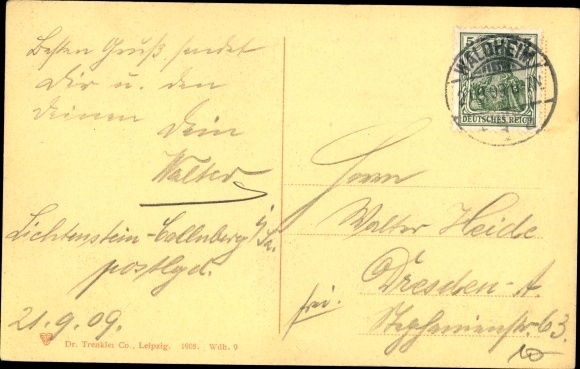 Besten Gruß sendet
Dir u. den
Deinen Dein
Walter
Lichtenstein-Callnberg i/Sa.
postlgd.
21.9.09.
Dr. Trenkler Co., Leipzig. 1908. Wdh. 9
5
WALDHEIM
DEUTSCHES REICH
Herrn
Walter Heide
Dresden-A.
frei.
Stephanienstr. 63.